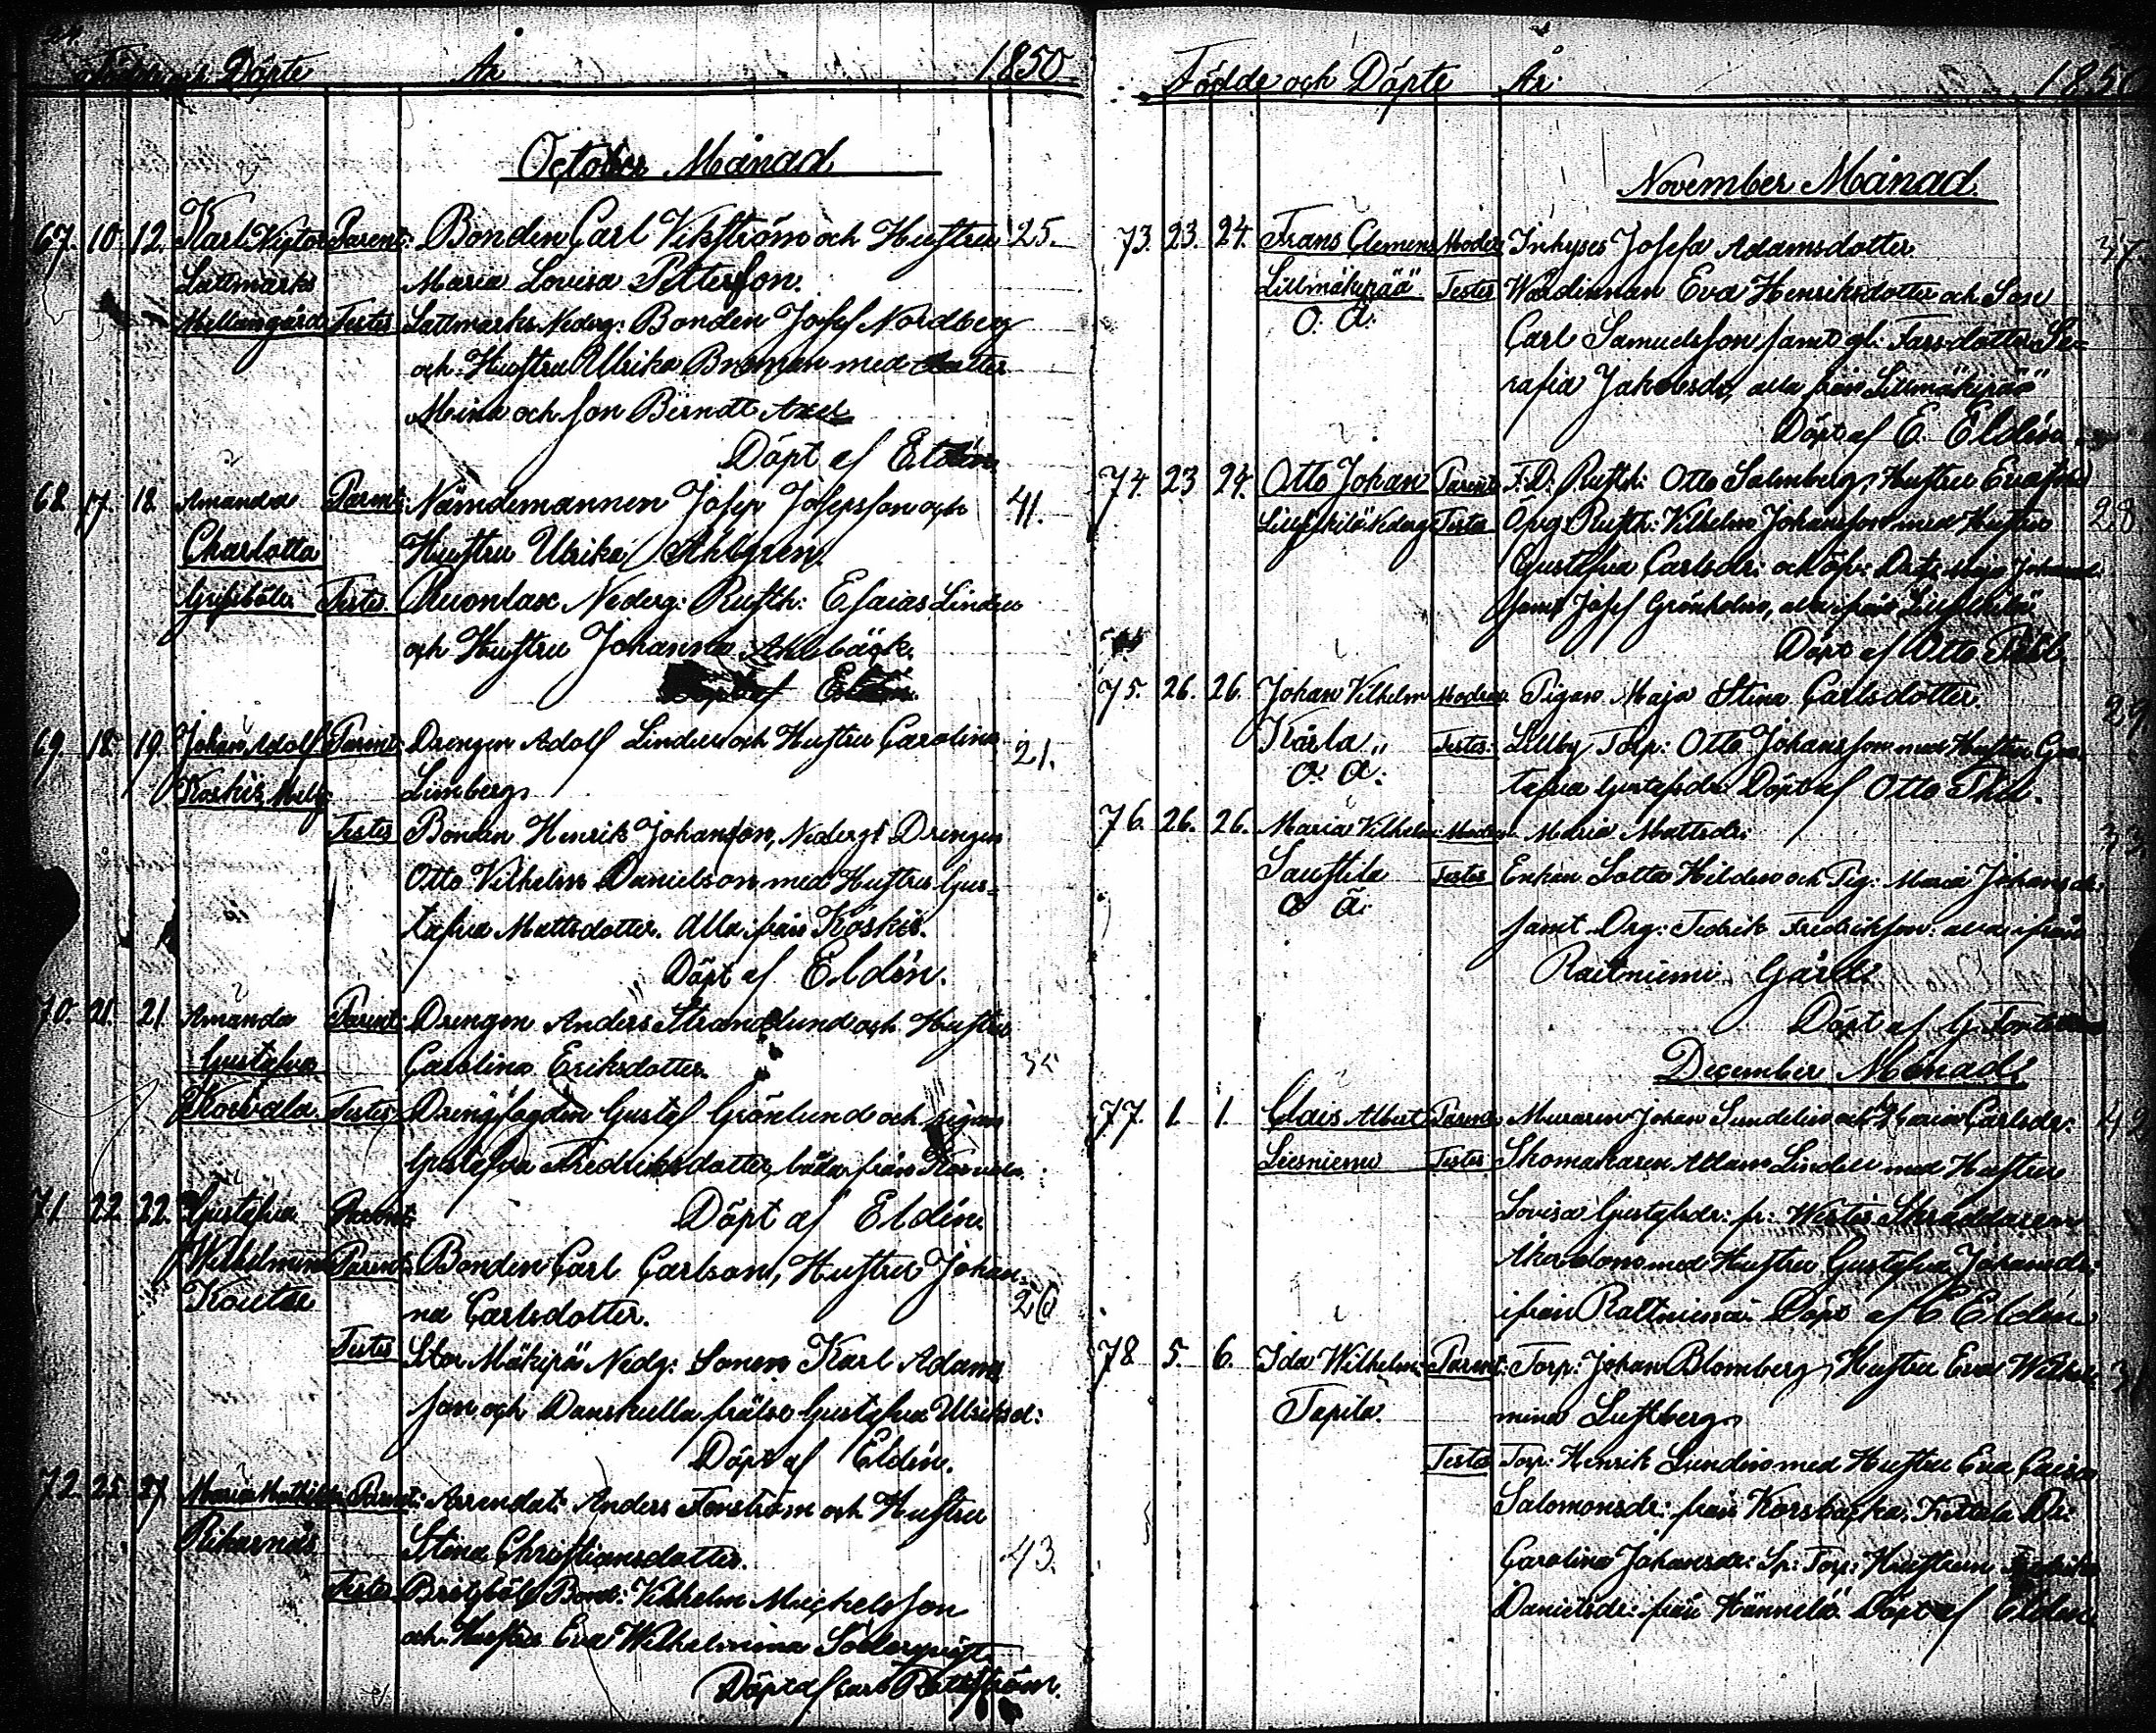 Födde och Döpte År 1850
October Månad
67. 10. 12. Karl Victor Parent: Bonden Carl Vikström och Hustru 25.
Lattmarks Maria Lovisa Petterson.
Mellangård Testes Lattmarks Nederg: Bonden Josef Nordberg
och Hustru Ulrika Broman med dotter
Mina och son Berndt Axel
Döpt af Eldén
68. 17. 18. Amanda Parent: Nämdemannen Josep Josepsson och 41.
Charlotta Hustru Ulrika Ahlgren.
Testes Nederg: Rusth: Esaias Linden
och Hustru Johanna Ahlbäck.
Döpt af Eldén.
69. 18. 19. Johan Adolf Parent: Drengen Adolf Linden och Hustru Carolina 21.
Koskis Melg: Limberg
Testes Bonden Henrik Johanson, Nederg: Drengen
Otto Vilhelm Danielson med Hustru Gus-
tafva Mattsdotter. Alla från Koskis.
Döpt af Eldén.
70. 21. 21. Amanda Parent: Drengen Anders Strandlund och Hustru
Gustafva Carolina Eriksdotter.
Korvala Testes Drengfogden Gustaf Grönlund och pigan
Gustafva Fredriksdotter, båda från Korvala.
71. 22. 22. Gustafva Parent: Döpt af Eldén.
Wilhelmina Parent: Bonden Carl Carlson, Hustru Johan- 26
Koutu na Carlsdotter.
Testes Stor Mäkipä Nedg: Sonen Karl Adams
son och Danskulla frälse Gustafva Ulriksd:
Döpt af Eldén.
72. 25. 27. Maria Mathilda Parent: Arrendat: Anders Fonström och Hustru
Rikarnäs Stina Christiansdotter. 43.
Testes Bond: Vilhelm Michelsson
och Hustru Eva Wilhelmina Söderqvist
Döpt af
Födde och Döpte År: 1850
November Månad
73. 23. 24. Frans Clemens Moder: Inhyses Josefa Adamsdotter. 37.
Lillmäkipää Testes Eva Henriksdotter och Son
O. Ä. Carl Samuelsson samt gl: Farsdotter Se-
rafia Jakobsdr, alla från Lillmäkipää
Döpt af E. Eldén
74. 23 24. Otto Johan Parent: F.D. Rusth: Otto Salmberg, Hustru Eva
Nederg Testes Öfvg: Rusth: Vilhelm Johansson med Hustru 28
Gustafva Carlsdr:
samt Josef Grönholm, alla från
Döpt af Otto
75. 26. 26. Johan Vilhelm Modren Pigan Maja Stina Carlsdotter. 29
Kärla Testes: Lillby Torp: Otto Johansson med Hustru Gus
O. Ä. tafva Gustafsdr Döpt af Otto
76. 26. 26. Maria Vilhelm: Modren Maria Mattsdr: 33
Saustila Testes Enkan Lotta Hilden och Pig: Maria Johansdr:
O. Ä. samt Drg: Fedrik Fredrikson: alla ifrån
Raitniemi Gård.
Döpt af G.
December Månad
77. 1. 1. Clais Albert Parent: Muraren Johan Sundelin och H Maria Carlsdr: 42
Liesniemi Testes Skomakaren Adam Lindell med Hustru
Lovisa Gustafsdr: fr: Westes Skräddaren
med Hustru Gustafva Johansdr:
ifrån Raitniemi. Döpt af E Eldén
78. 5. 6. Ida Wilhelm: Parent: Torp: Johan Blomberg, Hustru Eva Wilhel 31
Tapila. mina Lustberg
Testes Torp: Henrik Lundin med Hustru Eva Caisa
Salomonsdr: från Korsbacka, Kettala Dr:
Carolina Johansdr: Sp: Torp: Hustrun Fredrika
Danielsdr: från Hännilä. Döpt af Eldén